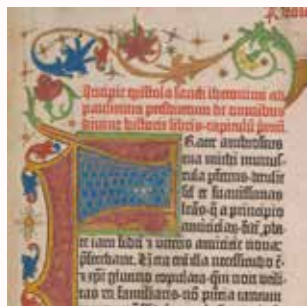 Incipit epistola sancti iheronimi ad
paulinum presbiterum de omnibus
divine historie libris·capitulū primū
Rater ambrosius
tua michi munus-
cula pferens·detulit
sil et suavissimas
lrās·q̄ a principio
amiciciaꝝ·fidē pba-
te iam fidei ⁊ veteris amicicie nova:
pferebant. Vera enī illa necessitudo ē·
⁊ xpī glutino copulata·qm̄ non utili-
tas rei familiaris·nō pn̄tia tantum